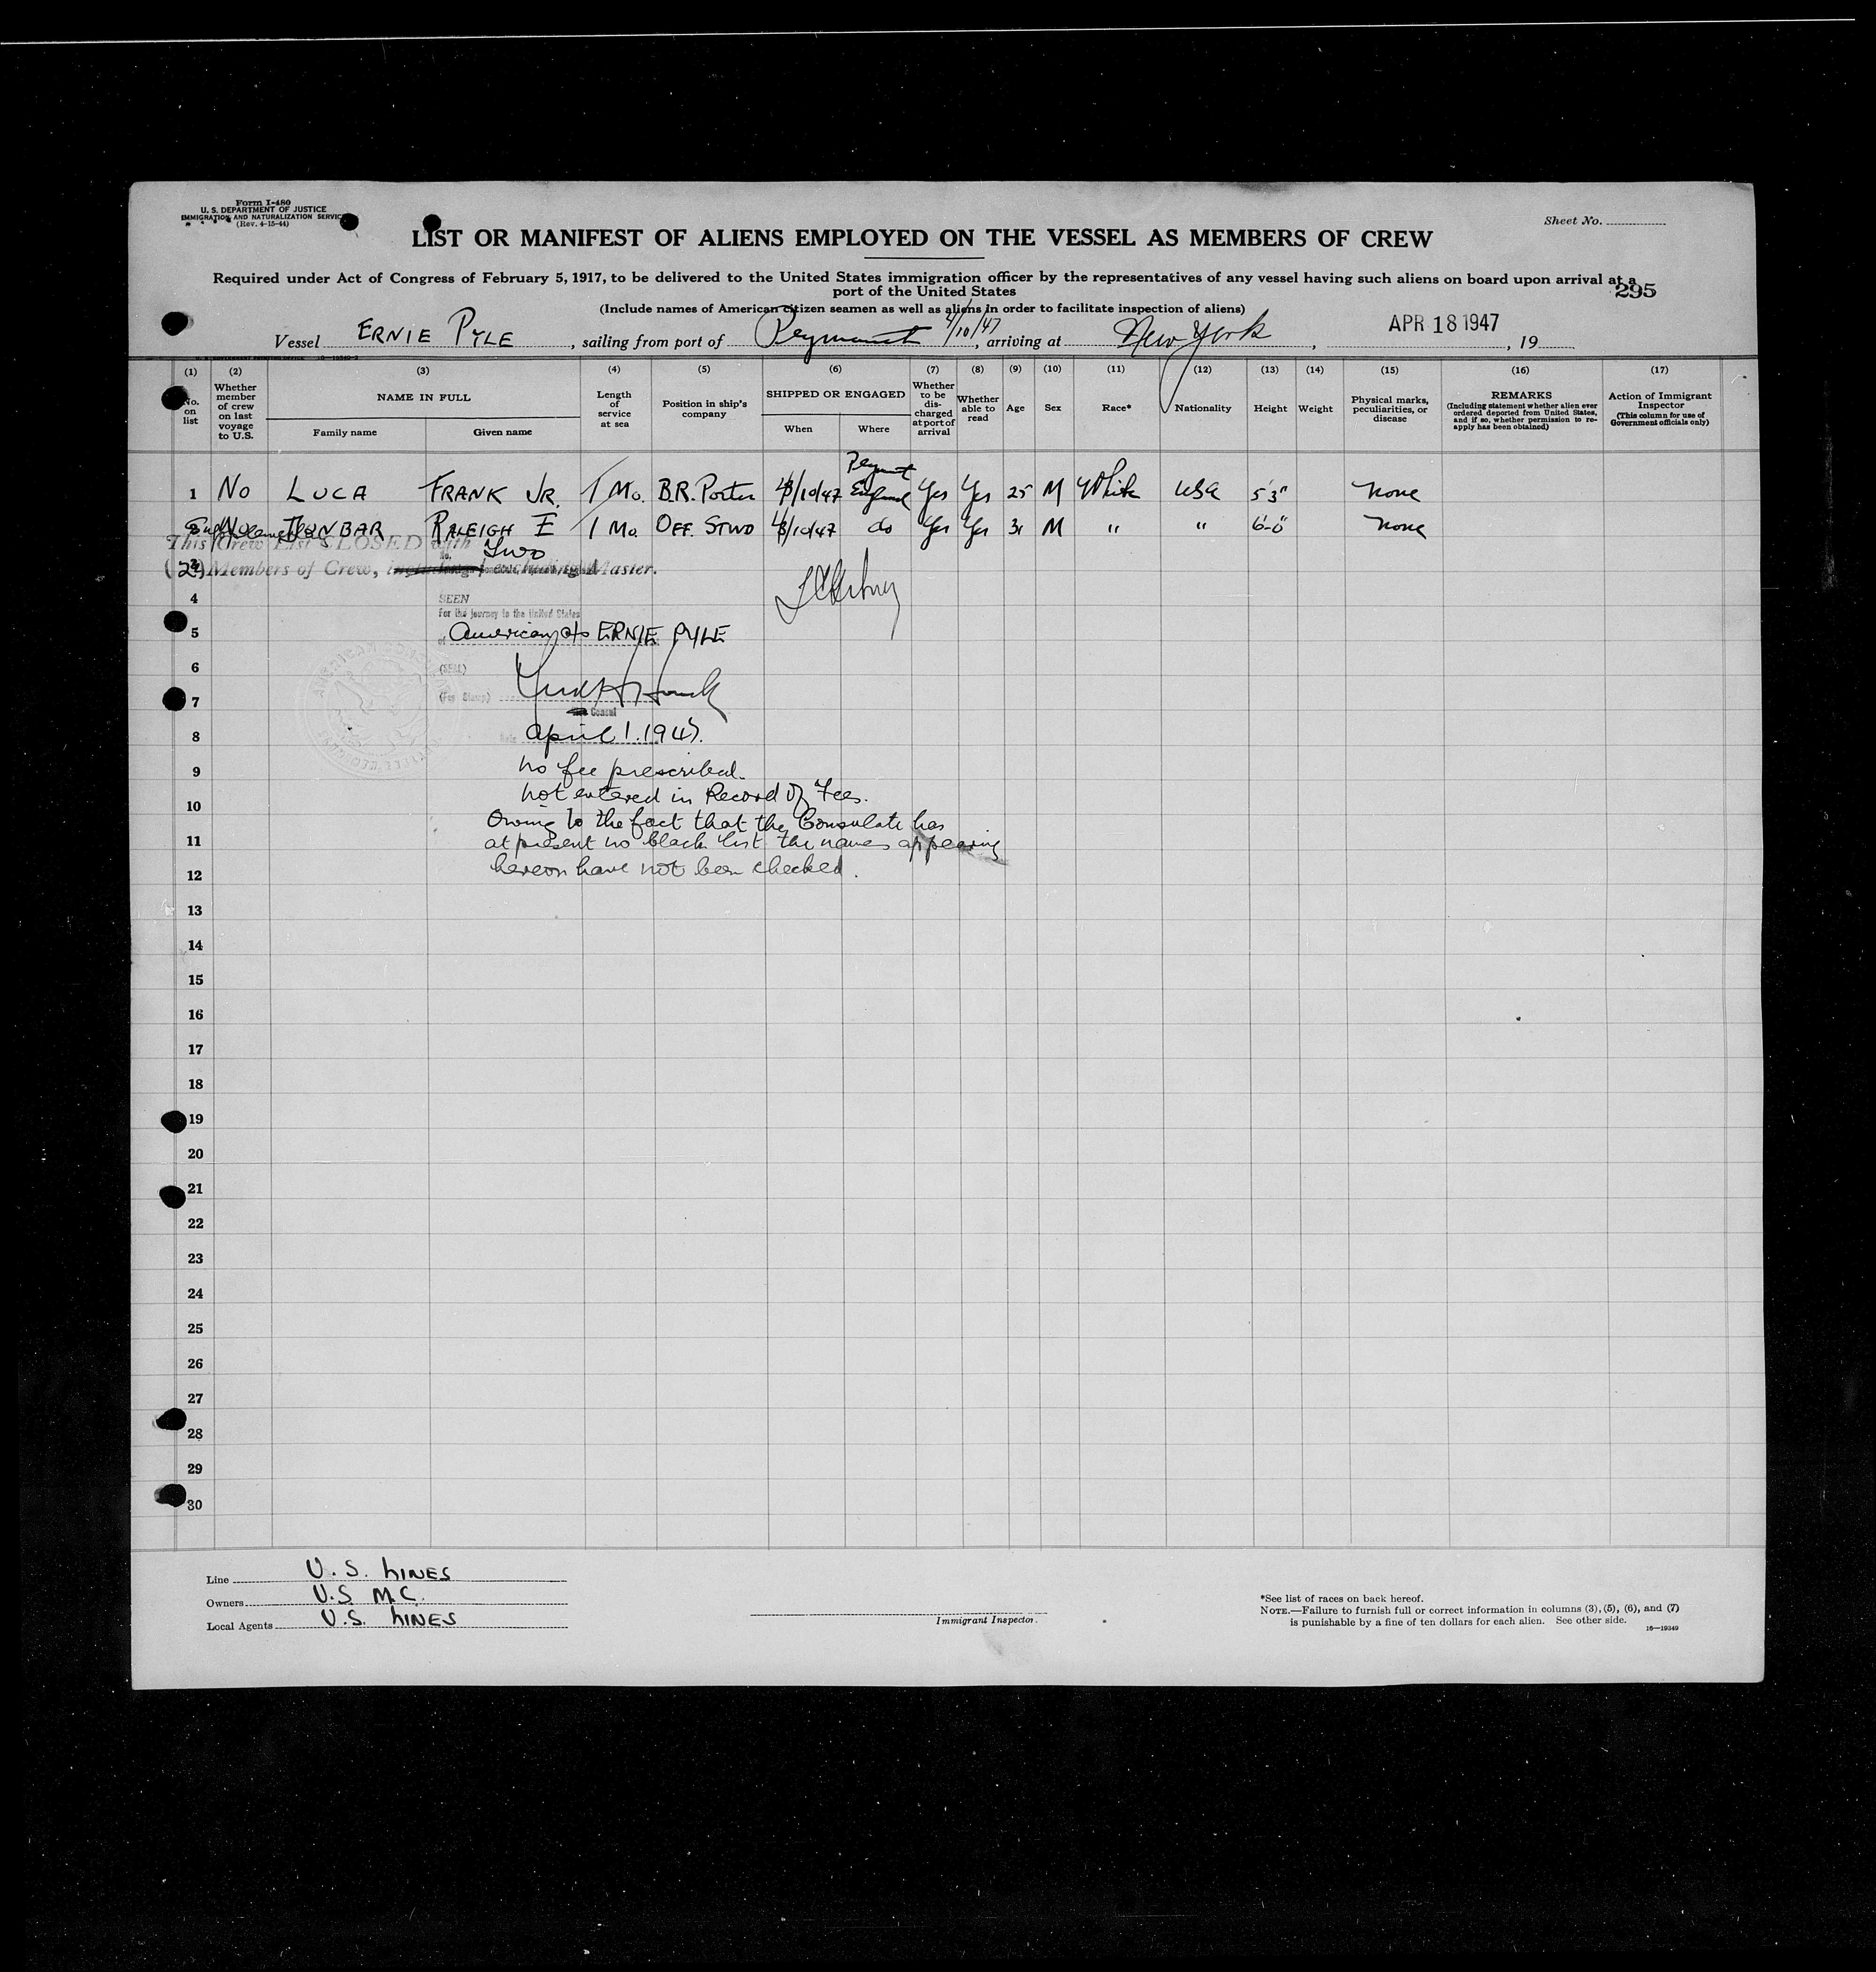 Form I-480
U. S. DEPARTMENT OF JUSTICE
IMMIGRATION AND NATURALIZATION SERVICE
(Rev. 4-15-44)
Sheet No.
LIST OR MANIFEST OF ALIENS EMPLOYED ON THE VESSEL AS MEMBERS OF CREW
Required under Act of Congress of February 5, 1917, to be delivered to the United States immigration officer by the representatives of any vessel having such aliens on board upon arrival at a
port of the United States
295
(Include names of American citizen seamen as well as aliens in order to facilitate inspection of aliens)
Vessel ERNIE PYLE, sailing from port of 4/10/47, arriving at New York, APR 18 1947, 19
(1) (2) (3) (4) (5) (6) (7) (8) (9) (10) (11) (12) (13) (14) (15) (16) (17)
No. on list
Whether member of crew on last voyage to U.S.
NAME IN FULL
Family name Given name
Length of service at sea
Position in ship's company
SHIPPED OR ENGAGED
When Where
Whether to be discharged at port of arrival
Whether able to read
Age
Sex
Race*
Nationality
Height
Weight
Physical marks, peculiarities, or disease
REMARKS
(Including statement whether alien ever ordered deported from United States, and if so, whether permission to re-apply has been obtained)
Action of Immigrant Inspector
(This column for use of Government officials only)
1 No LUCA FRANK JR. 1 Mo. B.R. Porter 4/10/47 England Yes Yes 25 M White USA 5'3" None
No DUNBAR RALEIGH E 1 Mo. OFF. STWD 4/10/47 do Yes Yes 31 M " " 6'-0" None
This Crew List CLOSED with
Two
(2) Members of Crew, excluding Master.
4
SEEN
For the journey to the United States
5 American s/s ERNIE PYLE
6 (SEAL)
7 (Fee Stamp)
Consul
8 April 1. 1947.
9 No fee prescribed.
Not entered in Record of Fees.
10 Owing to the fact that the Consulate has
11 at present no black list the names appearing
12 hereon have not been checked.
13
14
15
16
17
18
19
20
21
22
23
24
25
26
27
28
29
30
Line U.S. LINES
Owners U.S M.C.
Local Agents U.S. LINES
Immigrant Inspector.
*See list of races on back hereof.
NOTE.—Failure to furnish full or correct information in columns (3), (5), (6), and (7)
is punishable by a fine of ten dollars for each alien. See other side.
16—19349